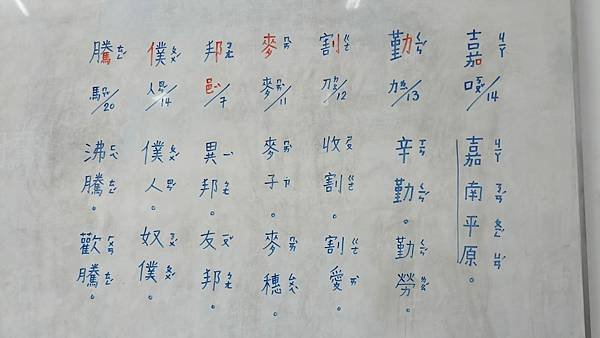 嘉ㄐㄧㄚ
口ㄎㄡˇ/14
嘉ㄐㄧㄚ南ㄋㄢˊ平ㄆㄧㄥˊ原ㄩㄢˊ。
勤ㄑㄧㄣˊ
力ㄌㄧˋ/13
辛ㄒㄧㄣ勤ㄑㄧㄣˊ。
勤ㄑㄧㄣˊ勞ㄌㄠˊ。
割ㄍㄜ
刀ㄉㄠ/12
收ㄕㄡ割ㄍㄜ。
割ㄍㄜ愛ㄞˋ。
麥ㄇㄞˋ
麥ㄇㄞˋ/11
麥ㄇㄞˋ子ㄗ˙。
麥ㄇㄞˋ穗ㄙㄨㄟˋ。
邦ㄅㄤ
邑ㄧˋ/7
異ㄧˋ邦ㄅㄤ。
友ㄧㄡˇ邦ㄅㄤ。
僕ㄆㄨˊ
人ㄖㄣˊ/14
僕ㄆㄨˊ人ㄖㄣˊ。
奴ㄋㄨˊ僕ㄆㄨˊ。
騰ㄊㄥˊ
馬ㄇㄚˇ/20
沸ㄈㄟˋ騰ㄊㄥˊ。
歡ㄏㄨㄢ騰ㄊㄥˊ。